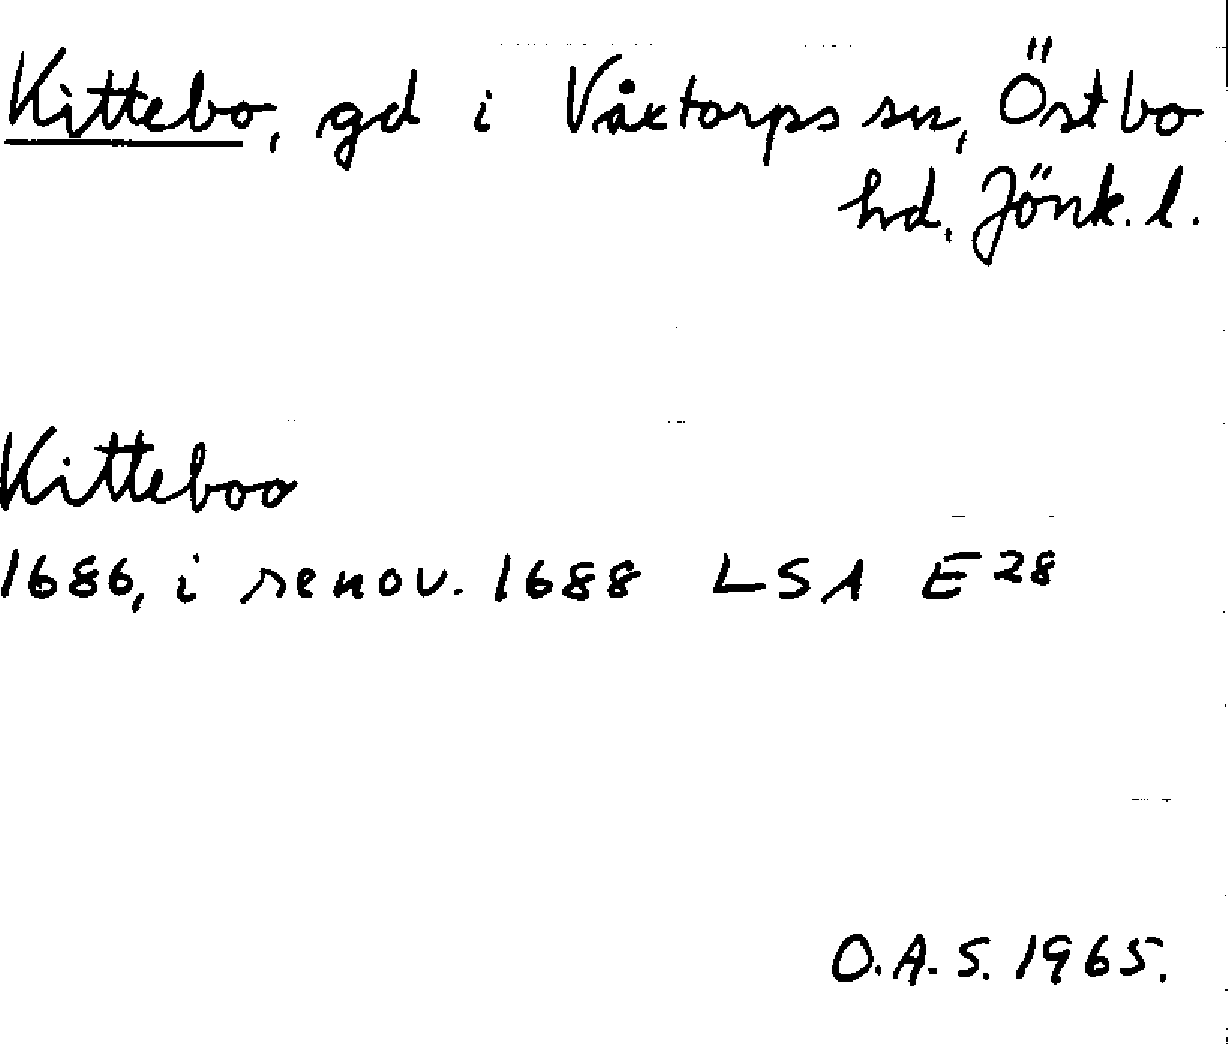 Kittebo, gd i Våxtorps sn, Östbo
hd, Jönk. l.
Kitteboo
1686, i renov. 1688 LSA E 28
O.A.S. 1965.